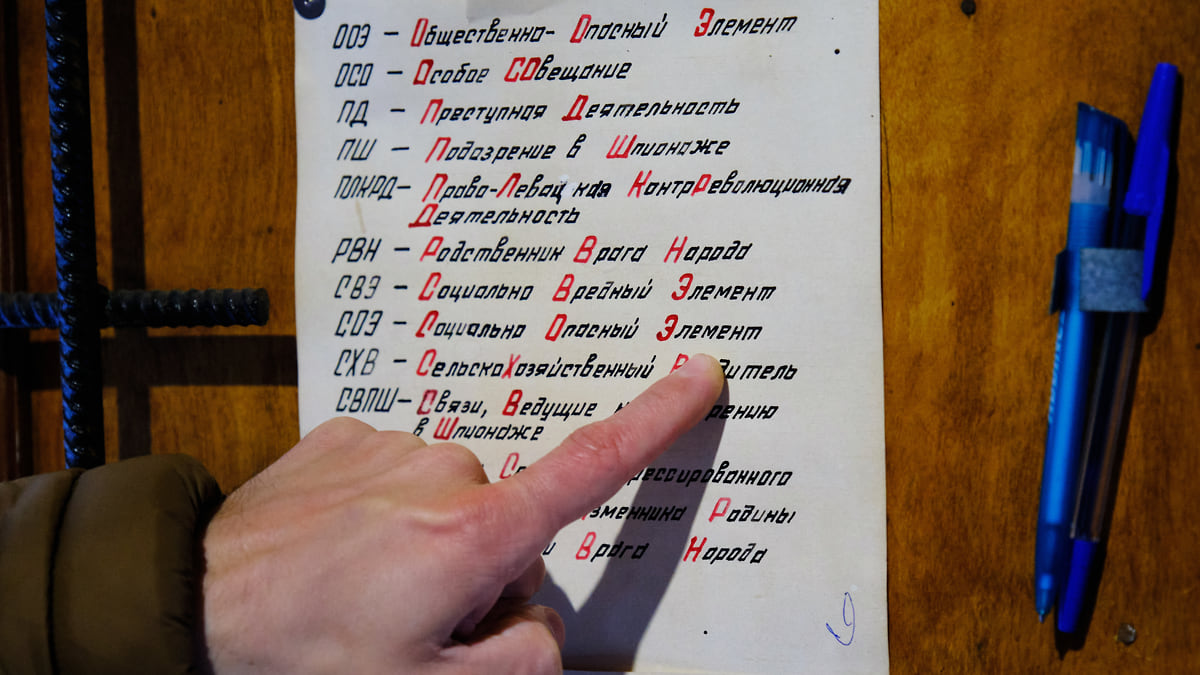 ООЭ – Общественно- Опасный Элемент
ОСО – Особое СОвещание
ПД – Преступная Деятельность
ПШ – Подозрение в Шпионаже
ПЛКРД – Право-Левацкая КонтрРеволюционная
Деятельность
РВН – Родственник Врага Народа
СВЭ – Социально Вредный Элемент
СОЭ – Социально Опасный Элемент
СХВ – СельскоХозяйственный
СВПШ – Связи, Ведущие
в Шпионаже
Изменника Родины
Врага Народа